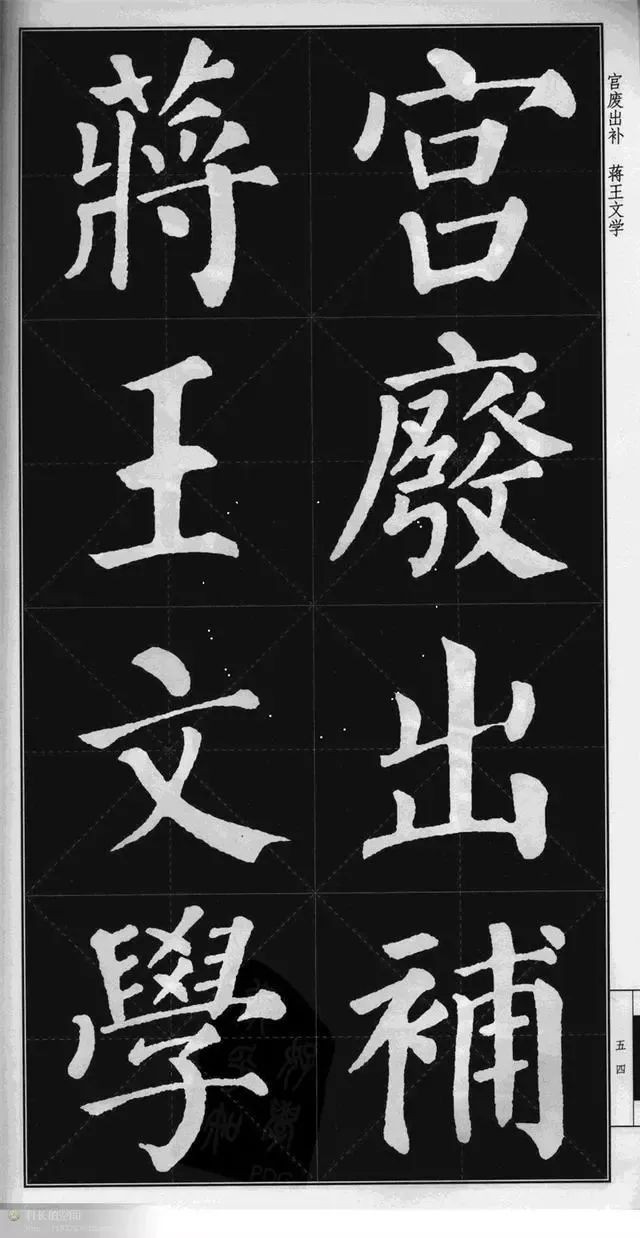 宫廢出補
蔣王文學
官废出补 蒋王文学
五四